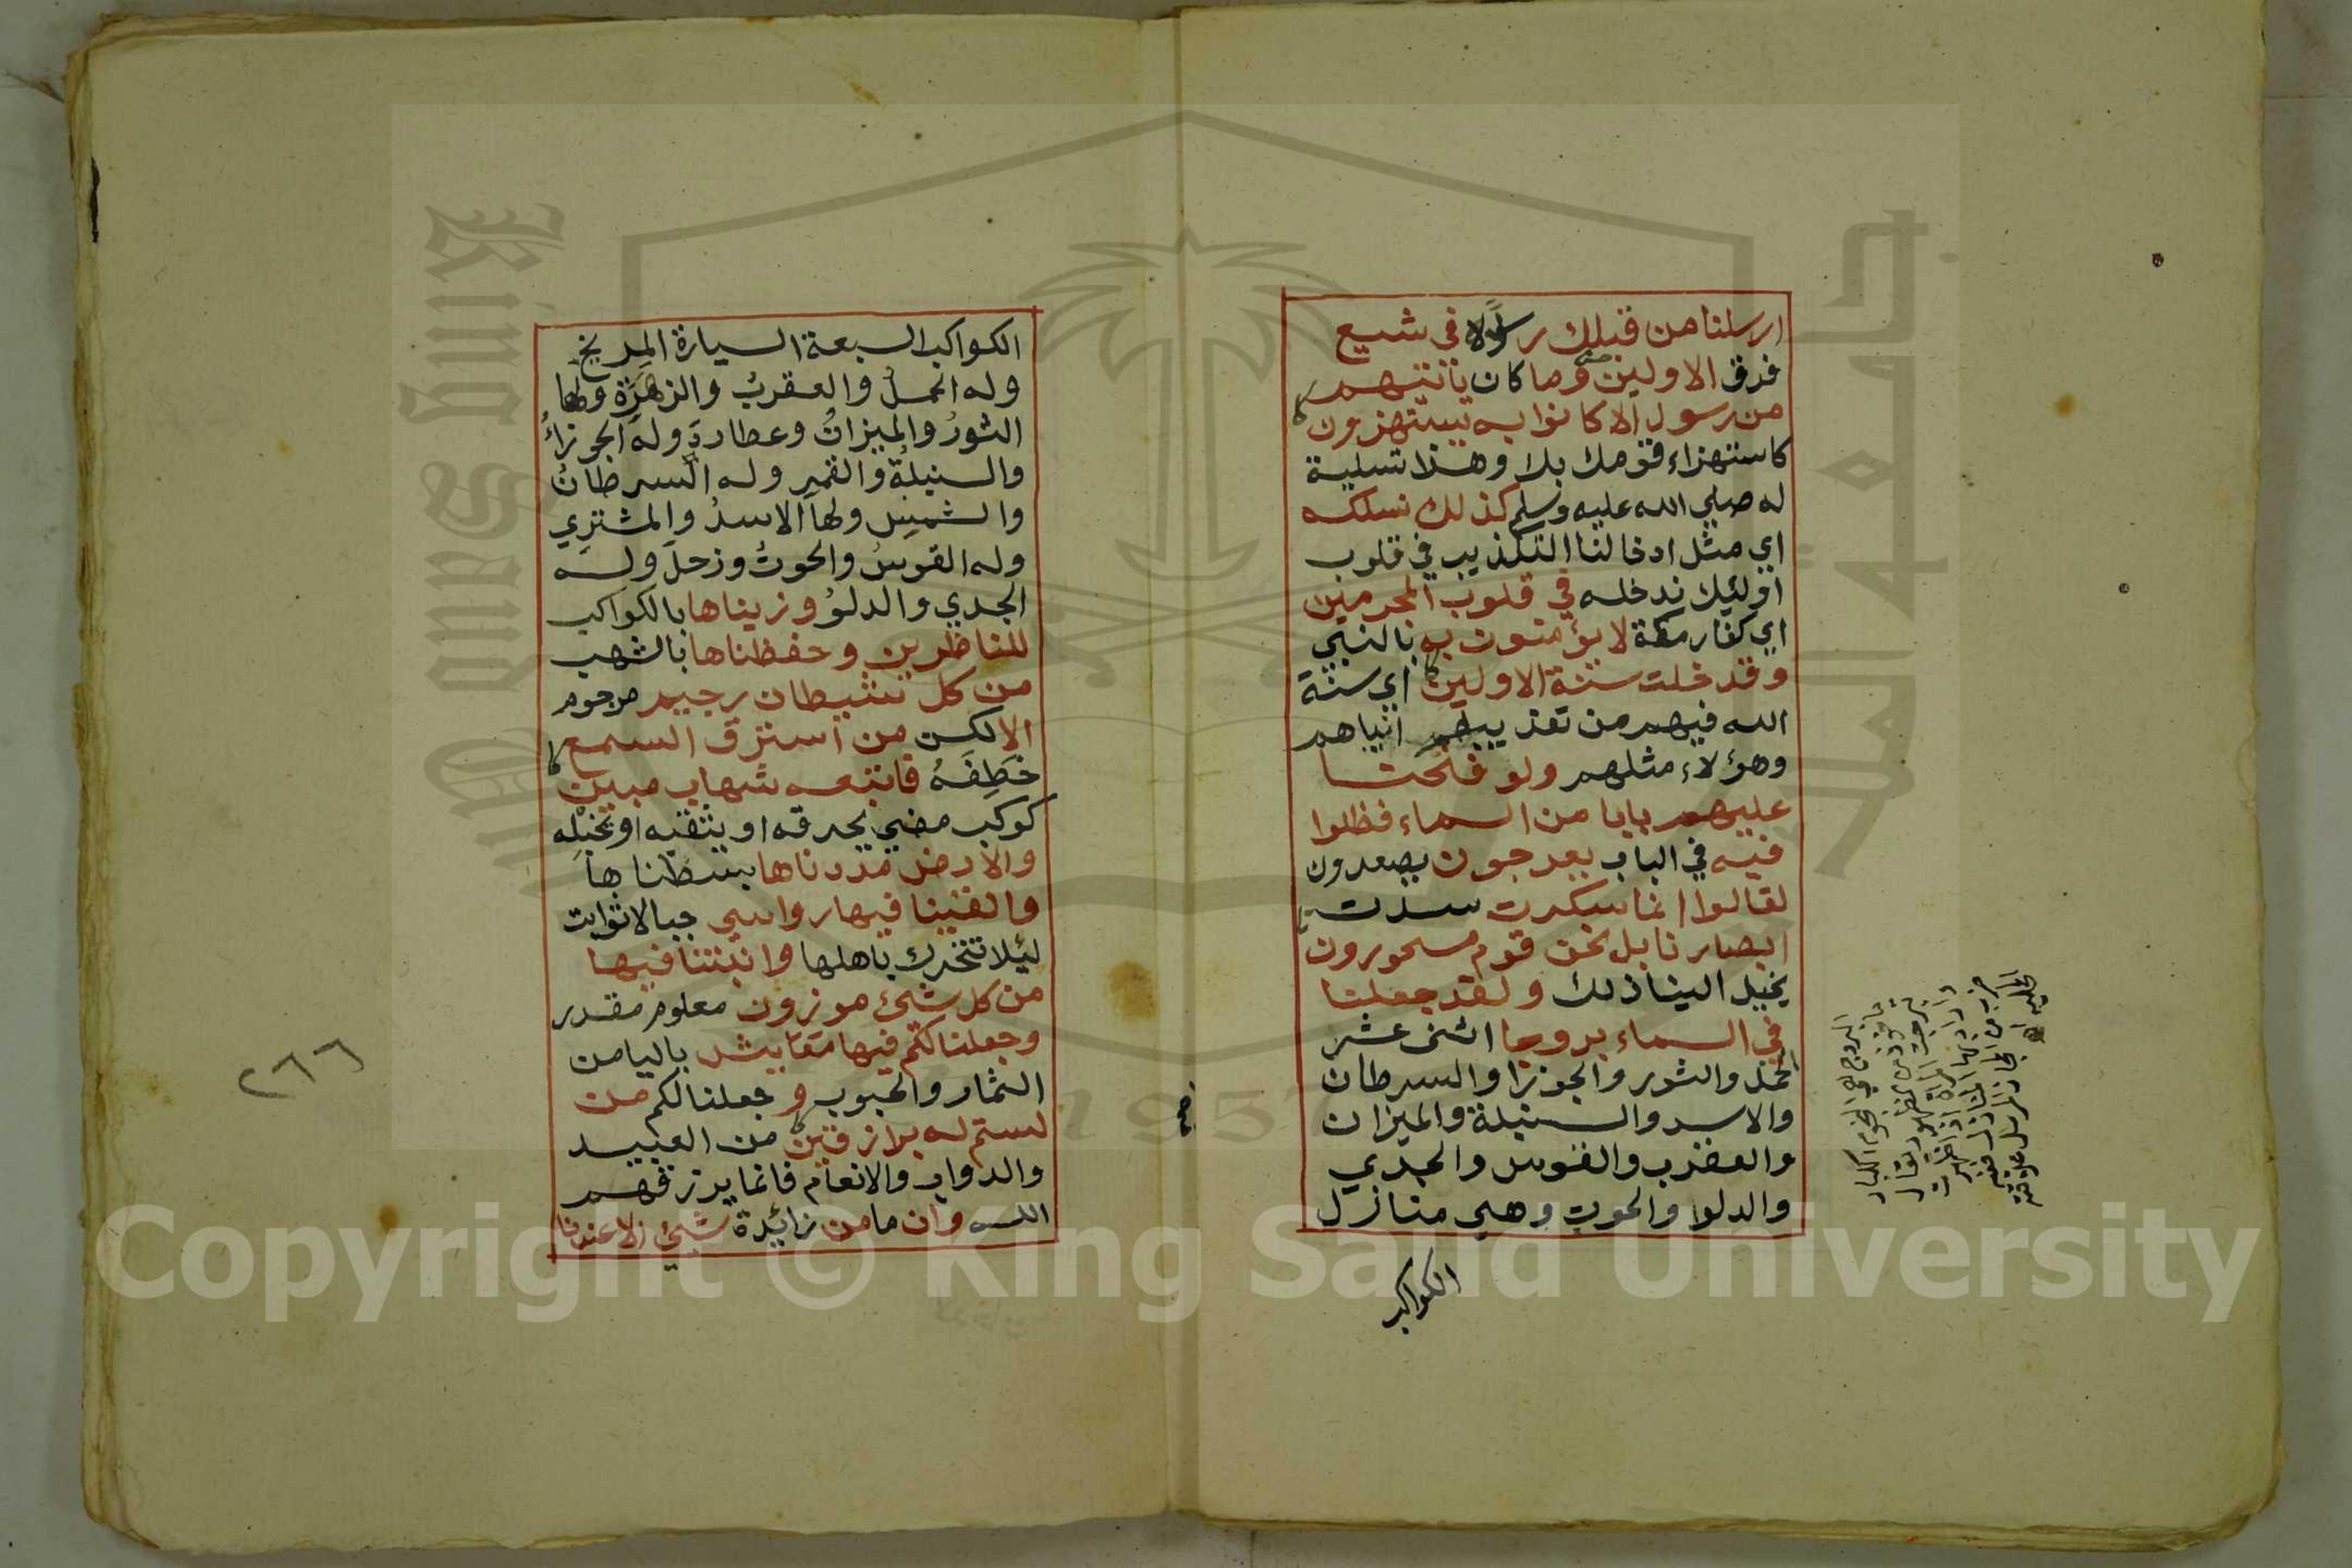 ارسلنا من قبلك رسولا في شيع
فرق الاولين وما كان يأتيهم
من رسول الا كانوا به يستهزون
كاستهزاء قومك بك وهذا تسلية
له صلي الله عليه وسلم كذلك نسلكه
اي مثل ادخالنا التكذيب في قلوب
اولئيك ندخله في قلوب المجرمين
اي كفار مكة لا يؤمنون به بالنبي
وقد خلت سنة الاولين اي سنة
الله فيهم من تعذيبهم انبياهم
وهؤلاء مثلهم ولو فتحنا
عليهم بابا من السماء فظلوا
فيه في الباب يعرجون يصعدون
لقالوا انما سكرت سدت
ابصارنا بل نحن قوم مسحورون
يخيل الينا ذلك ولقد جعلنا
في السماء بروجا اثنى عشر
الحمل والثور والجوزا والسرطان
والاسد والسنبلة والميزان
والعقرب والقوس والجدي
والدلو والحوت وهي منازل
الكواكب
البروج هي النجوم الكبار
الكواكب السبعة السيارة المريخ
وله الحمل والعقرب والزهرة ولها
الثور والميزان وعطارد وله الجوزاء
والسنبلة والقمر وله السرطان
والشمس ولها الاسد والمشتري
وله القوس والحوت وزحل وله
الجدي والدلو وزيناها بالكواكب
للناظرين وحفظناها بالشهب
من كل شيطان رجيم مرجوم
الا لكن من استرق السمع
خطفه فاتبعه شهاب مبين
كوكب مضي يحرقه او يثقبه او يخبله
والارض مددناها بسطناها
والقينا فيها رواسي جبالا ثوابت
ليلا تتحرك باهلها وانبتنا فيها
من كل شئ موزون معلوم مقدر
وجعلنا لكم فيها معايش باليا من
الثمار والحبوب وجعلنا لكم من
لستم له برازقين من العبيد
والدواب والانعام فانما يرزقهم
الله وان ما من زائدة شئ الا عندنا
٢٦٦
King Saud University
جامعة الملك سعود
1957
Copyright © King Saud University